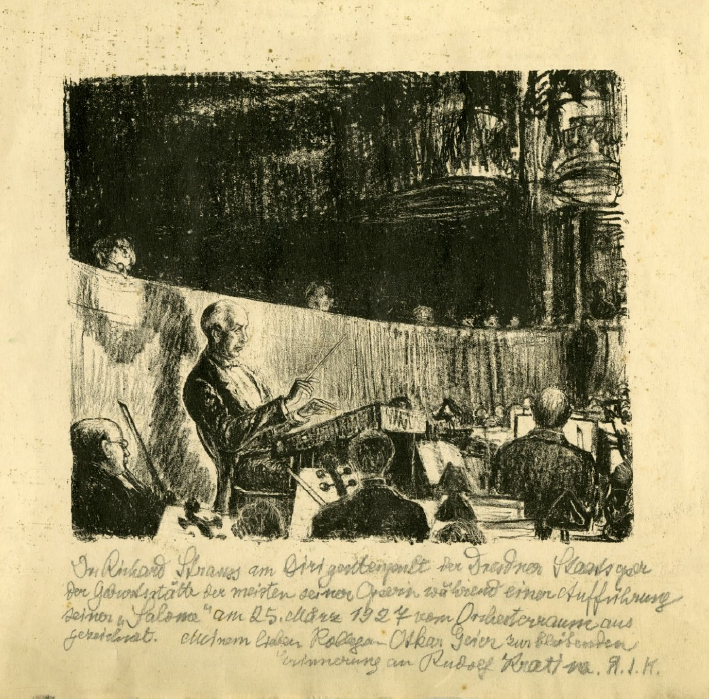 Dr. Richard Strauss am Dirigentenpult der Dresdner Staatsoper
der Geburtsstätte der meisten seiner Opern während einer Aufführung
seiner „Salome“ am 25. März 1927 vom Orchesterraum aus
gezeichnet. Meinem lieben Kollegen Oskar Geier zur bleibenden
Erinnerung an Rudolf Kratina.